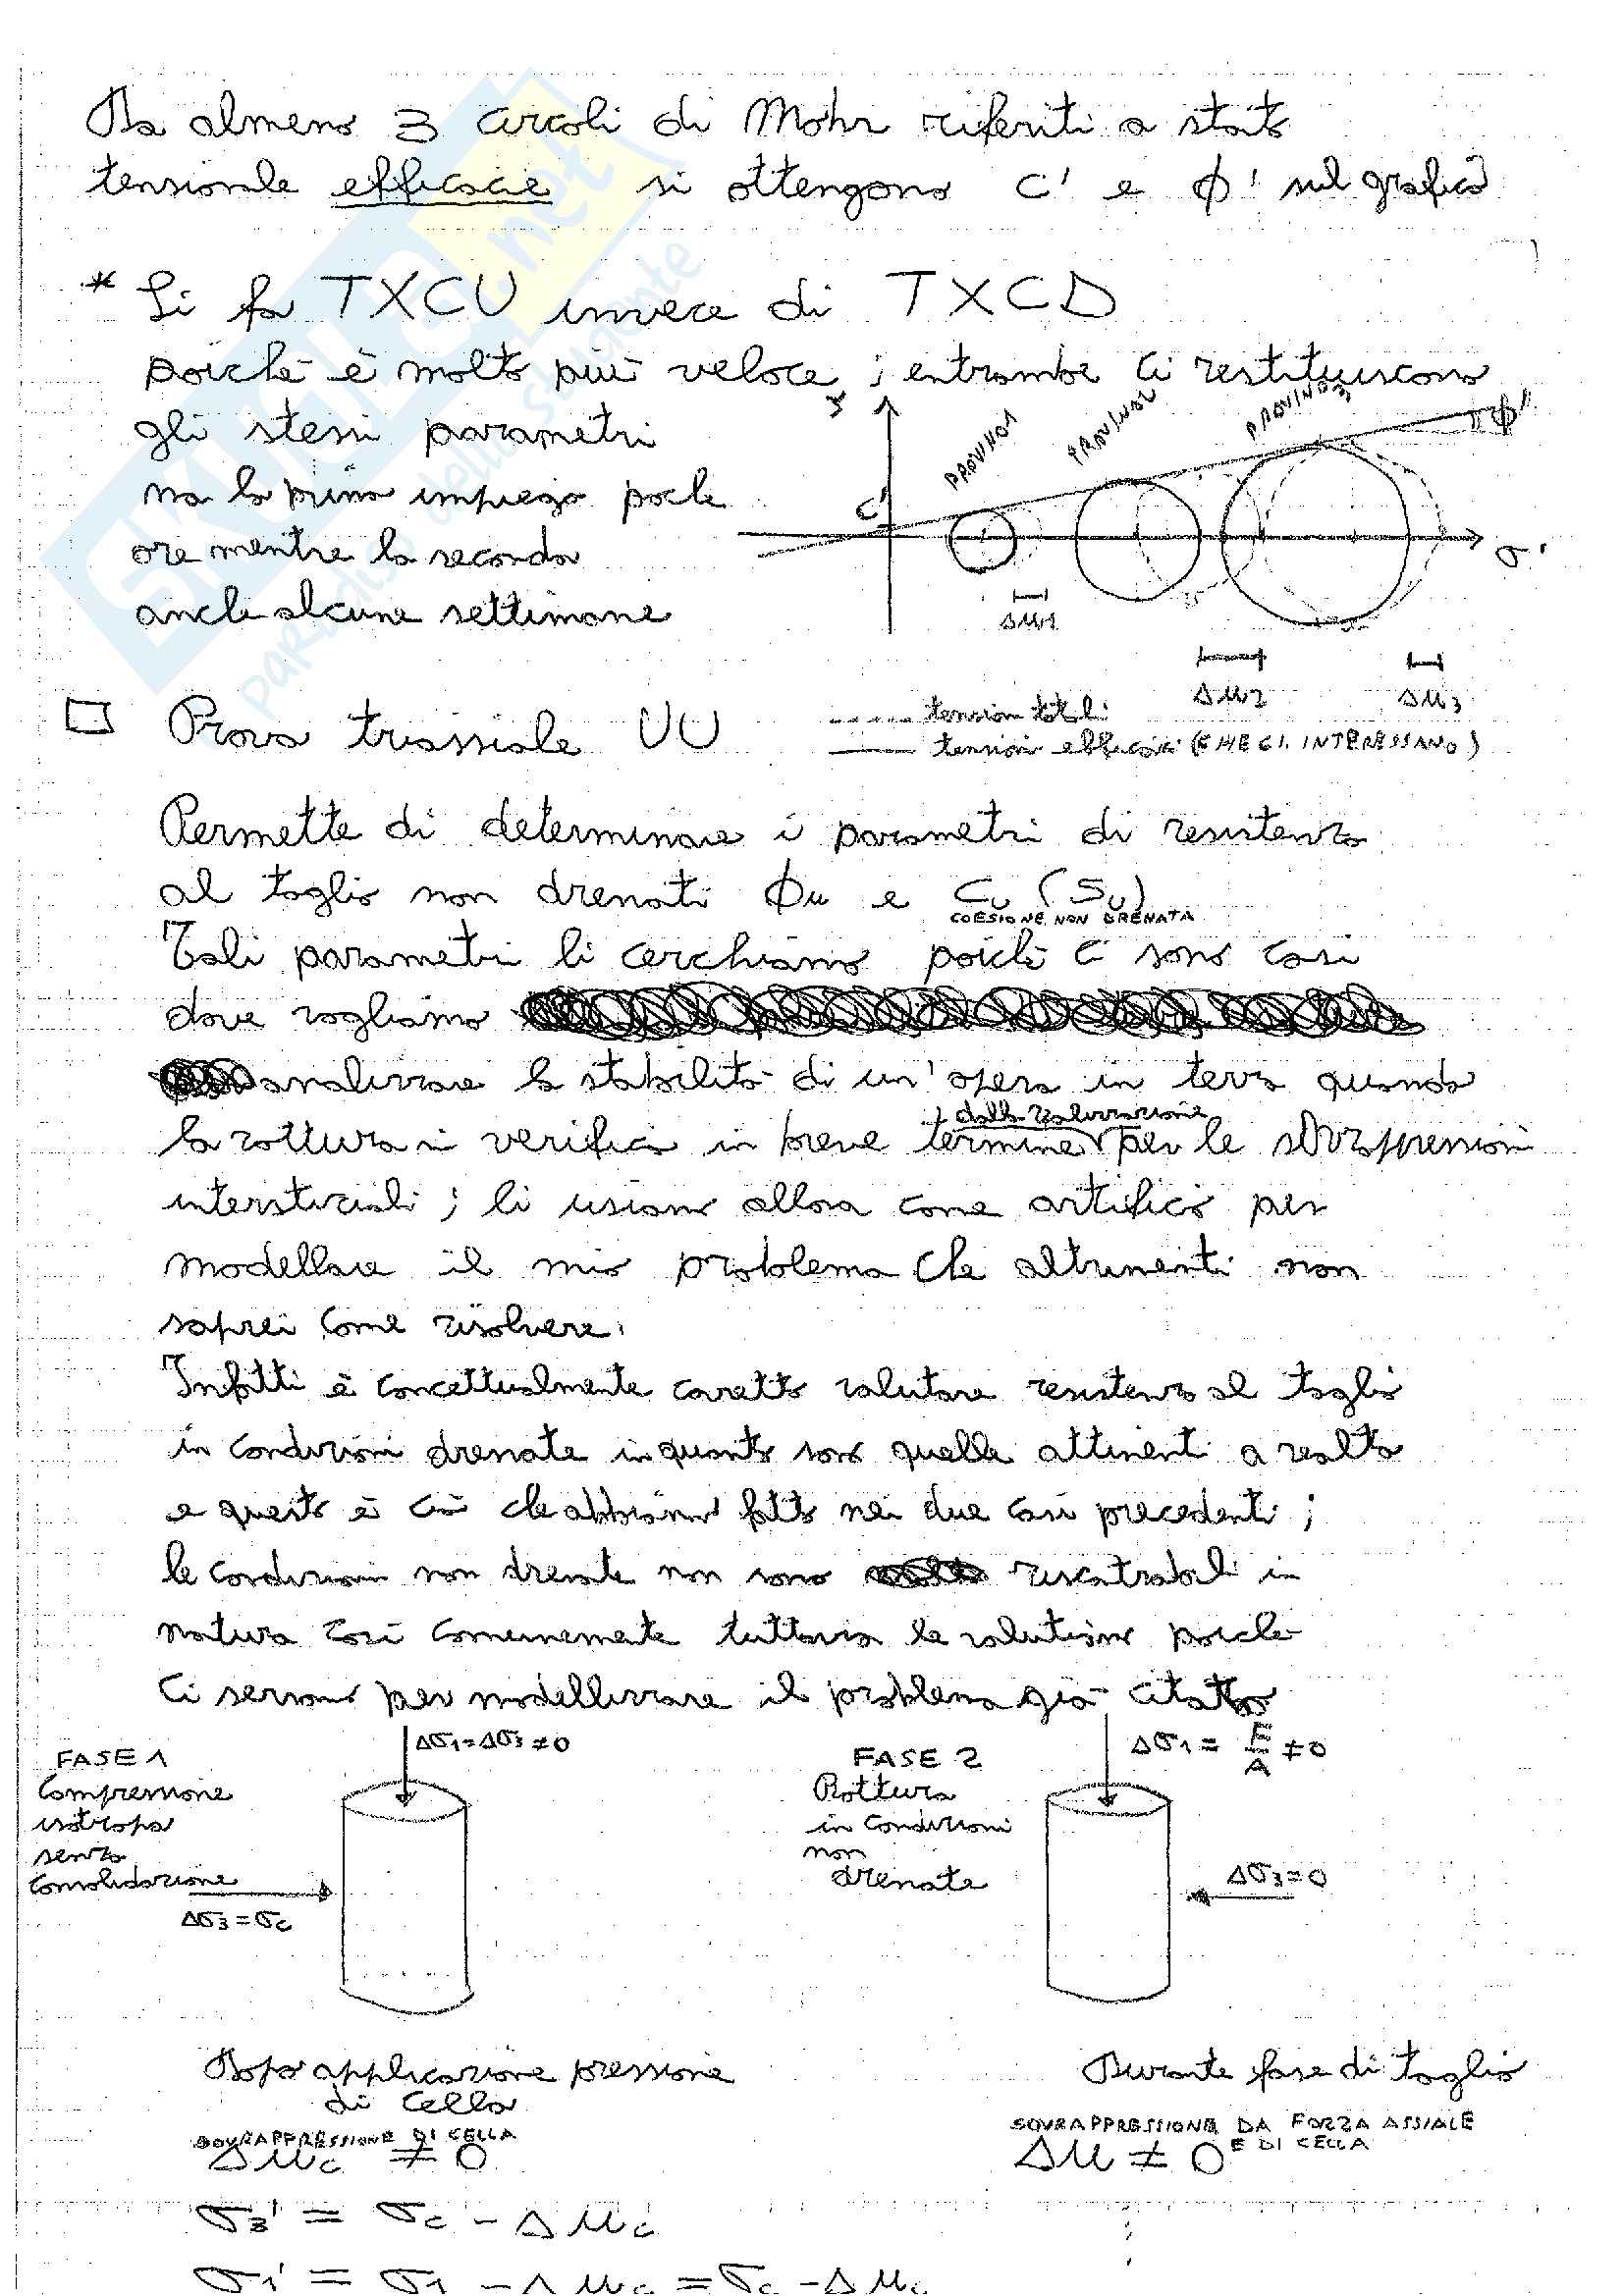 Da almeno 3 circoli di Mohr riferiti a stato
tensionale efficacie si ottengono C' e ϕ' sul grafico
* Si fa TXCU invece di TXCD
poichè è molto più veloce; entrambe ci restituiscono
gli stessi parametri
ma la prima impiega poche
ore mentre la seconda
anche alcune settimane
PROVINO1 PROVINO2 PROVINO3
ϕ'
C'
σ'
Δu1
Δu2 Δu3
tensioni totali
tensioni efficaci (CHE CI INTERESSANO)
Prova triassiale UU
Permette di determinare i parametri di resistenza
al taglio non drenati ϕu e Cu (Su)
COESIONE NON DRENATA
Tali parametri li cerchiamo poichè ci sono casi
dove vogliamo
analizzare la stabilità di un'opera in terra quando
dalla realizzazione
la rottura si verifica in breve termine per le sovrapressioni
interstiziali; li usiamo allora come artificio per
modellare il mio problema che altrimenti non
saprei come risolvere.
Infatti è concettualmente corretto valutare resistenza al taglio
in condizioni drenate in quanto sono quelle attinenti a realtà
e questo è ciò che abbiamo fatto nei due casi precedenti;
le condizioni non drenate non sono riscontrabili in
natura così comunemente tuttavia le valutiamo poichè
ci servono per modellizzare il problema già citato
FASE 1
Compressione
isotropa
senza
consolidazione
Δσ1=Δσ3≠0
Δσ3=σc
FASE 2
Rottura
in condizioni
non
drenate
Δσ1 = F/A ≠0
Δσ3=0
Dopo applicazione pressione
di cella
SOVRAPPRESSIONE DI CELLA
Δuc ≠ 0
σ3' = σc - Δuc
σ1' = σ1 - Δuc = σc - Δuc
Durante fase di taglio
SOVRAPPRESSIONE DA FORZA ASSIALE
E DI CELLA
Δu ≠ 0